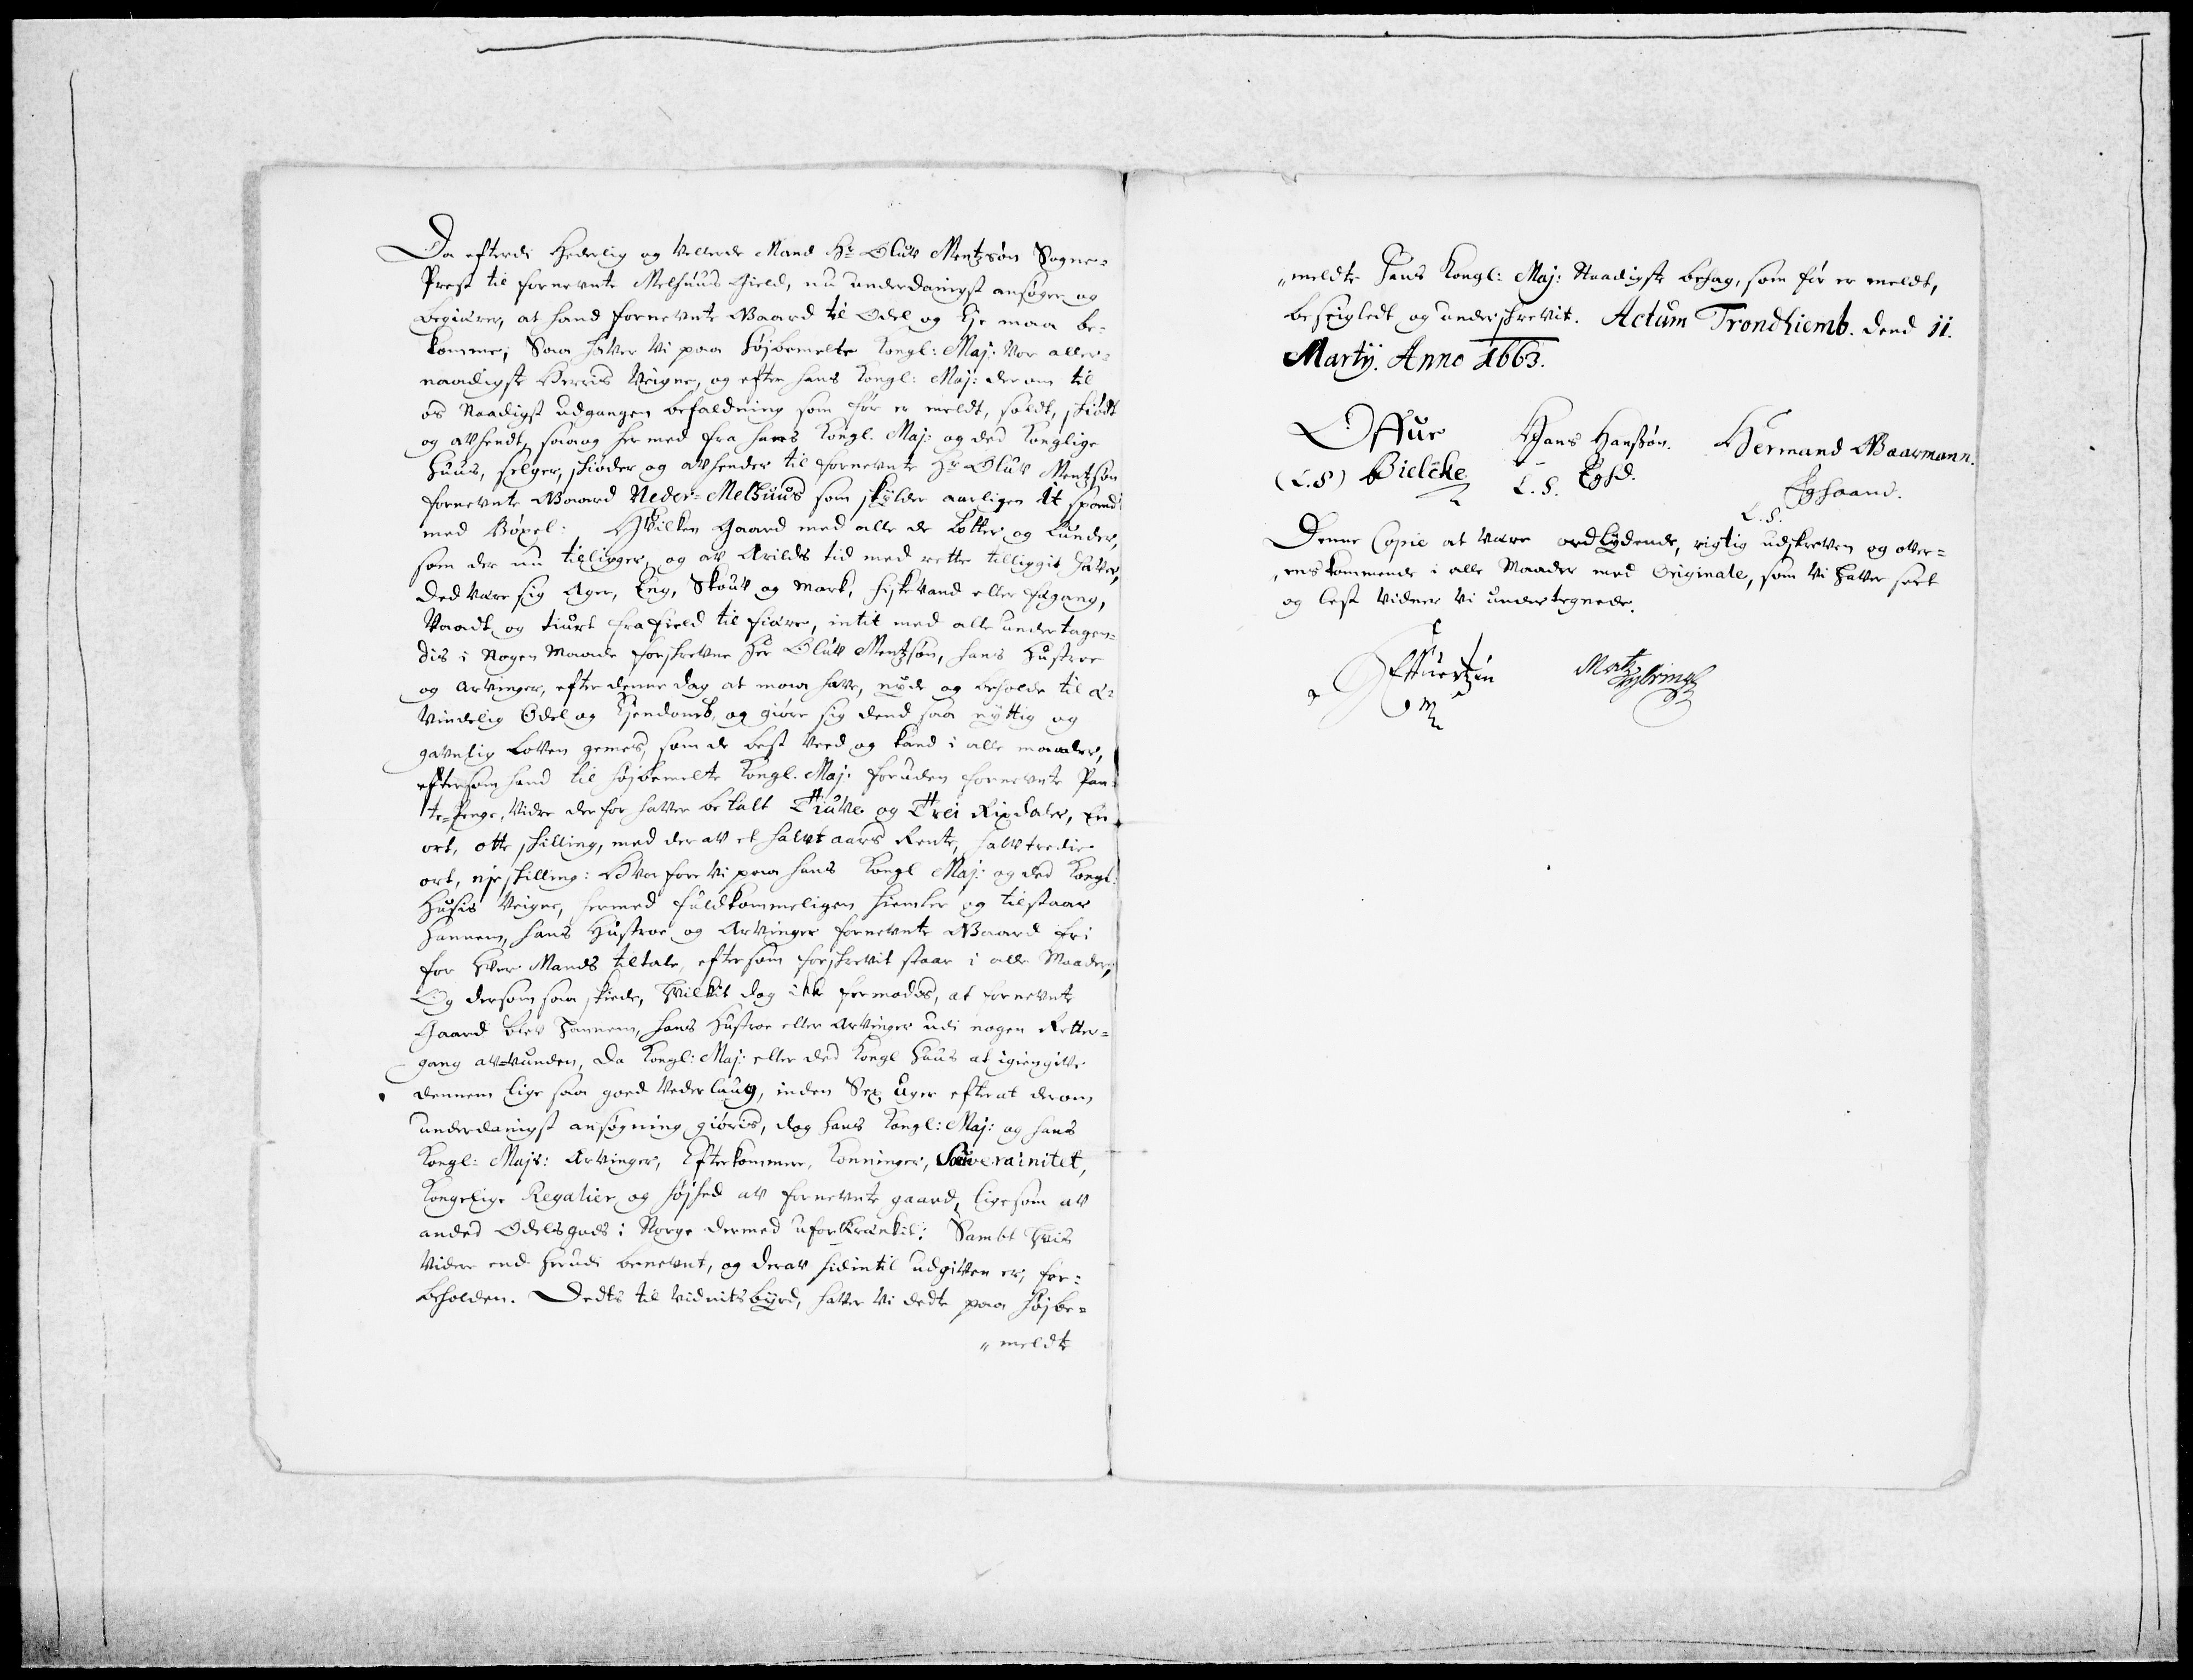 Da efterdi Hederlig og Vellerde Mand Hr Oluv Mentzsøn Sogne-
Prest til fornevnte Melhuus Gield, nu underdanigst ansøger og
begiærer, at hand fornevnte Gaard til Odel og Eje maa be-
komme; Saa haver Vi paa højbemelte Kongl: Maj: Vor aller-
naadigste Herris Veigne, og efter hans Kongl: Maj: derom til
os Naadigst udgangen befaldning som før er meldt, soldt, skiødt
og avhendt, saa og her med fra hans Kongl. Maj: og ded Konglige
Huus, selger, skiøder og avhender til fornevnte Hr Oluv Mentzsøn
fornevnte Gaard Neder-Melhuus som skylder aarligen it spand
med Bøxel: Hvilken Gaard med alle de Lotter og Lunder,
som der nu tilligger, og av Arilds tid med rette tilliggit haver,
ded være sig Ager, Eng, Skouv og Mark, fiskevand eller fægang,
Vaadt og tiurt fra field til fiære, intit med alle undertagen-
dis i Nogen Maade forskrevne Her Oluv Mentzsøn, hans Hustroe
og Arvinger, efter denne dag at maa have, nyde og beholde til æ-
Vindelig Odel og Ejendomb, og giøre sig dend saa nyttig og
gavnlig Loven gemes, som de best Veed og kand i alle maader,
eftersom hand til højbemelte Kongl. Maj: foruden fornevnte Pan-
te-Penge, Vidre der for haver betalt Tiuve og Trei Rixdaler, En
ort, otte skilling, med der av et halvt aars Rente, halvtredie
ort, nje skilling: Hvorfore Vi paa hans Kongl Maj: og ded Kongl:
Husis Veigne, hermed fuldkommeligen hiemler og tilstaar
Hannem, hans Hustroe og Arvinger fornevnte Gaard fri
for Hver Mands tiltale, eftersom forskrevit staar i alle Maader,
Og dersom saa skiede, hvilkit dog ikke formodes, at fornevnte
Gaard blev Hannem, hans Hustroe eller Arvinger udi nogen Retter-
gang avvunden, da Kongl: Maj: eller ded Kongl Huus at igiengive
dennem lige saa goed Vederlaug, inden Sex Uger efter at derom
underdanigst ansøgning giøris, dog hans Kongl: Maj: og hans
Kongl: Majs: Arvinger, Efterkommere, Konninger, Souverainitet,
Kongelige Regalier, og højhed av fornevnte gaard, ligesom av
anded Odelsgods i Norge dermed uforkrænkit; Sambt hvis
Videre end herudi benevnt, og derav hidintil udgiven er, for-
beholden. Dedts til Vidnitsbyrd, haver Vi dedte paa højbe-
„meldte
„meldte Hans Kongl: Maj: Naadigste behag, som før er meldt,
besegledt og underskrevit. Actum Trondhiemb. dend 11.
Martij. Anno 1663.
Offue Hans Hanssøn. Hermand Gaarmann.
(L.S) Bielcke L.S. Eghd. Eghaand.
L.S.
Denne Copie at være ordlydende, rigtig udskreven og over-
„enskommende i alle Maader med Originale, som Vi haver seet
og lest Vidner Vi undertegnede.